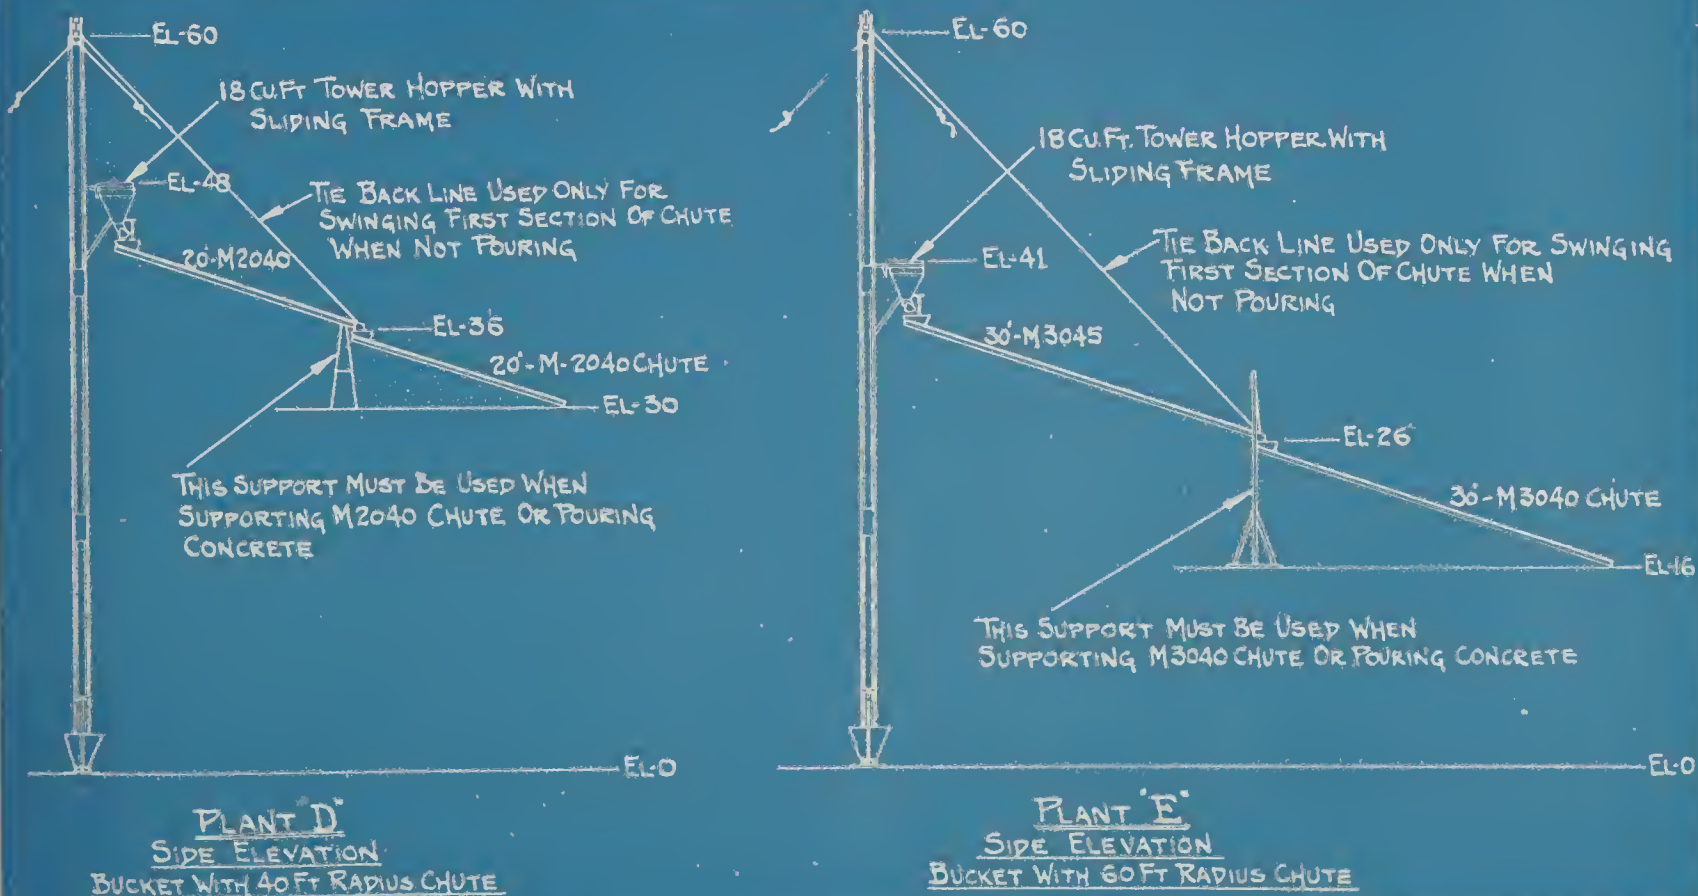 EL-60
18 CU.FT TOWER HOPPER WITH
SLIDING FRAME
EL-48
TIE BACK LINE USED ONLY FOR
SWINGING FIRST SECTION OF CHUTE
WHEN NOT POURING
20'-M2040
EL-36
20'-M-2040 CHUTE
EL-30
THIS SUPPORT MUST BE USED WHEN
SUPPORTING M2040 CHUTE OR POURING
CONCRETE
EL-0
PLANT "D"
SIDE ELEVATION
BUCKET WITH 40 FT RADIUS CHUTE
EL-60
18 CU.FT. TOWER HOPPER WITH
SLIDING FRAME
EL-41
TIE BACK LINE USED ONLY FOR SWINGING
FIRST SECTION OF CHUTE WHEN
NOT POURING
30'-M3045
EL-26
30'-M3040 CHUTE
EL-16
THIS SUPPORT MUST BE USED WHEN
SUPPORTING M3040 CHUTE OR POURING CONCRETE
EL-0
PLANT "E"
SIDE ELEVATION
BUCKET WITH 60 FT RADIUS CHUTE